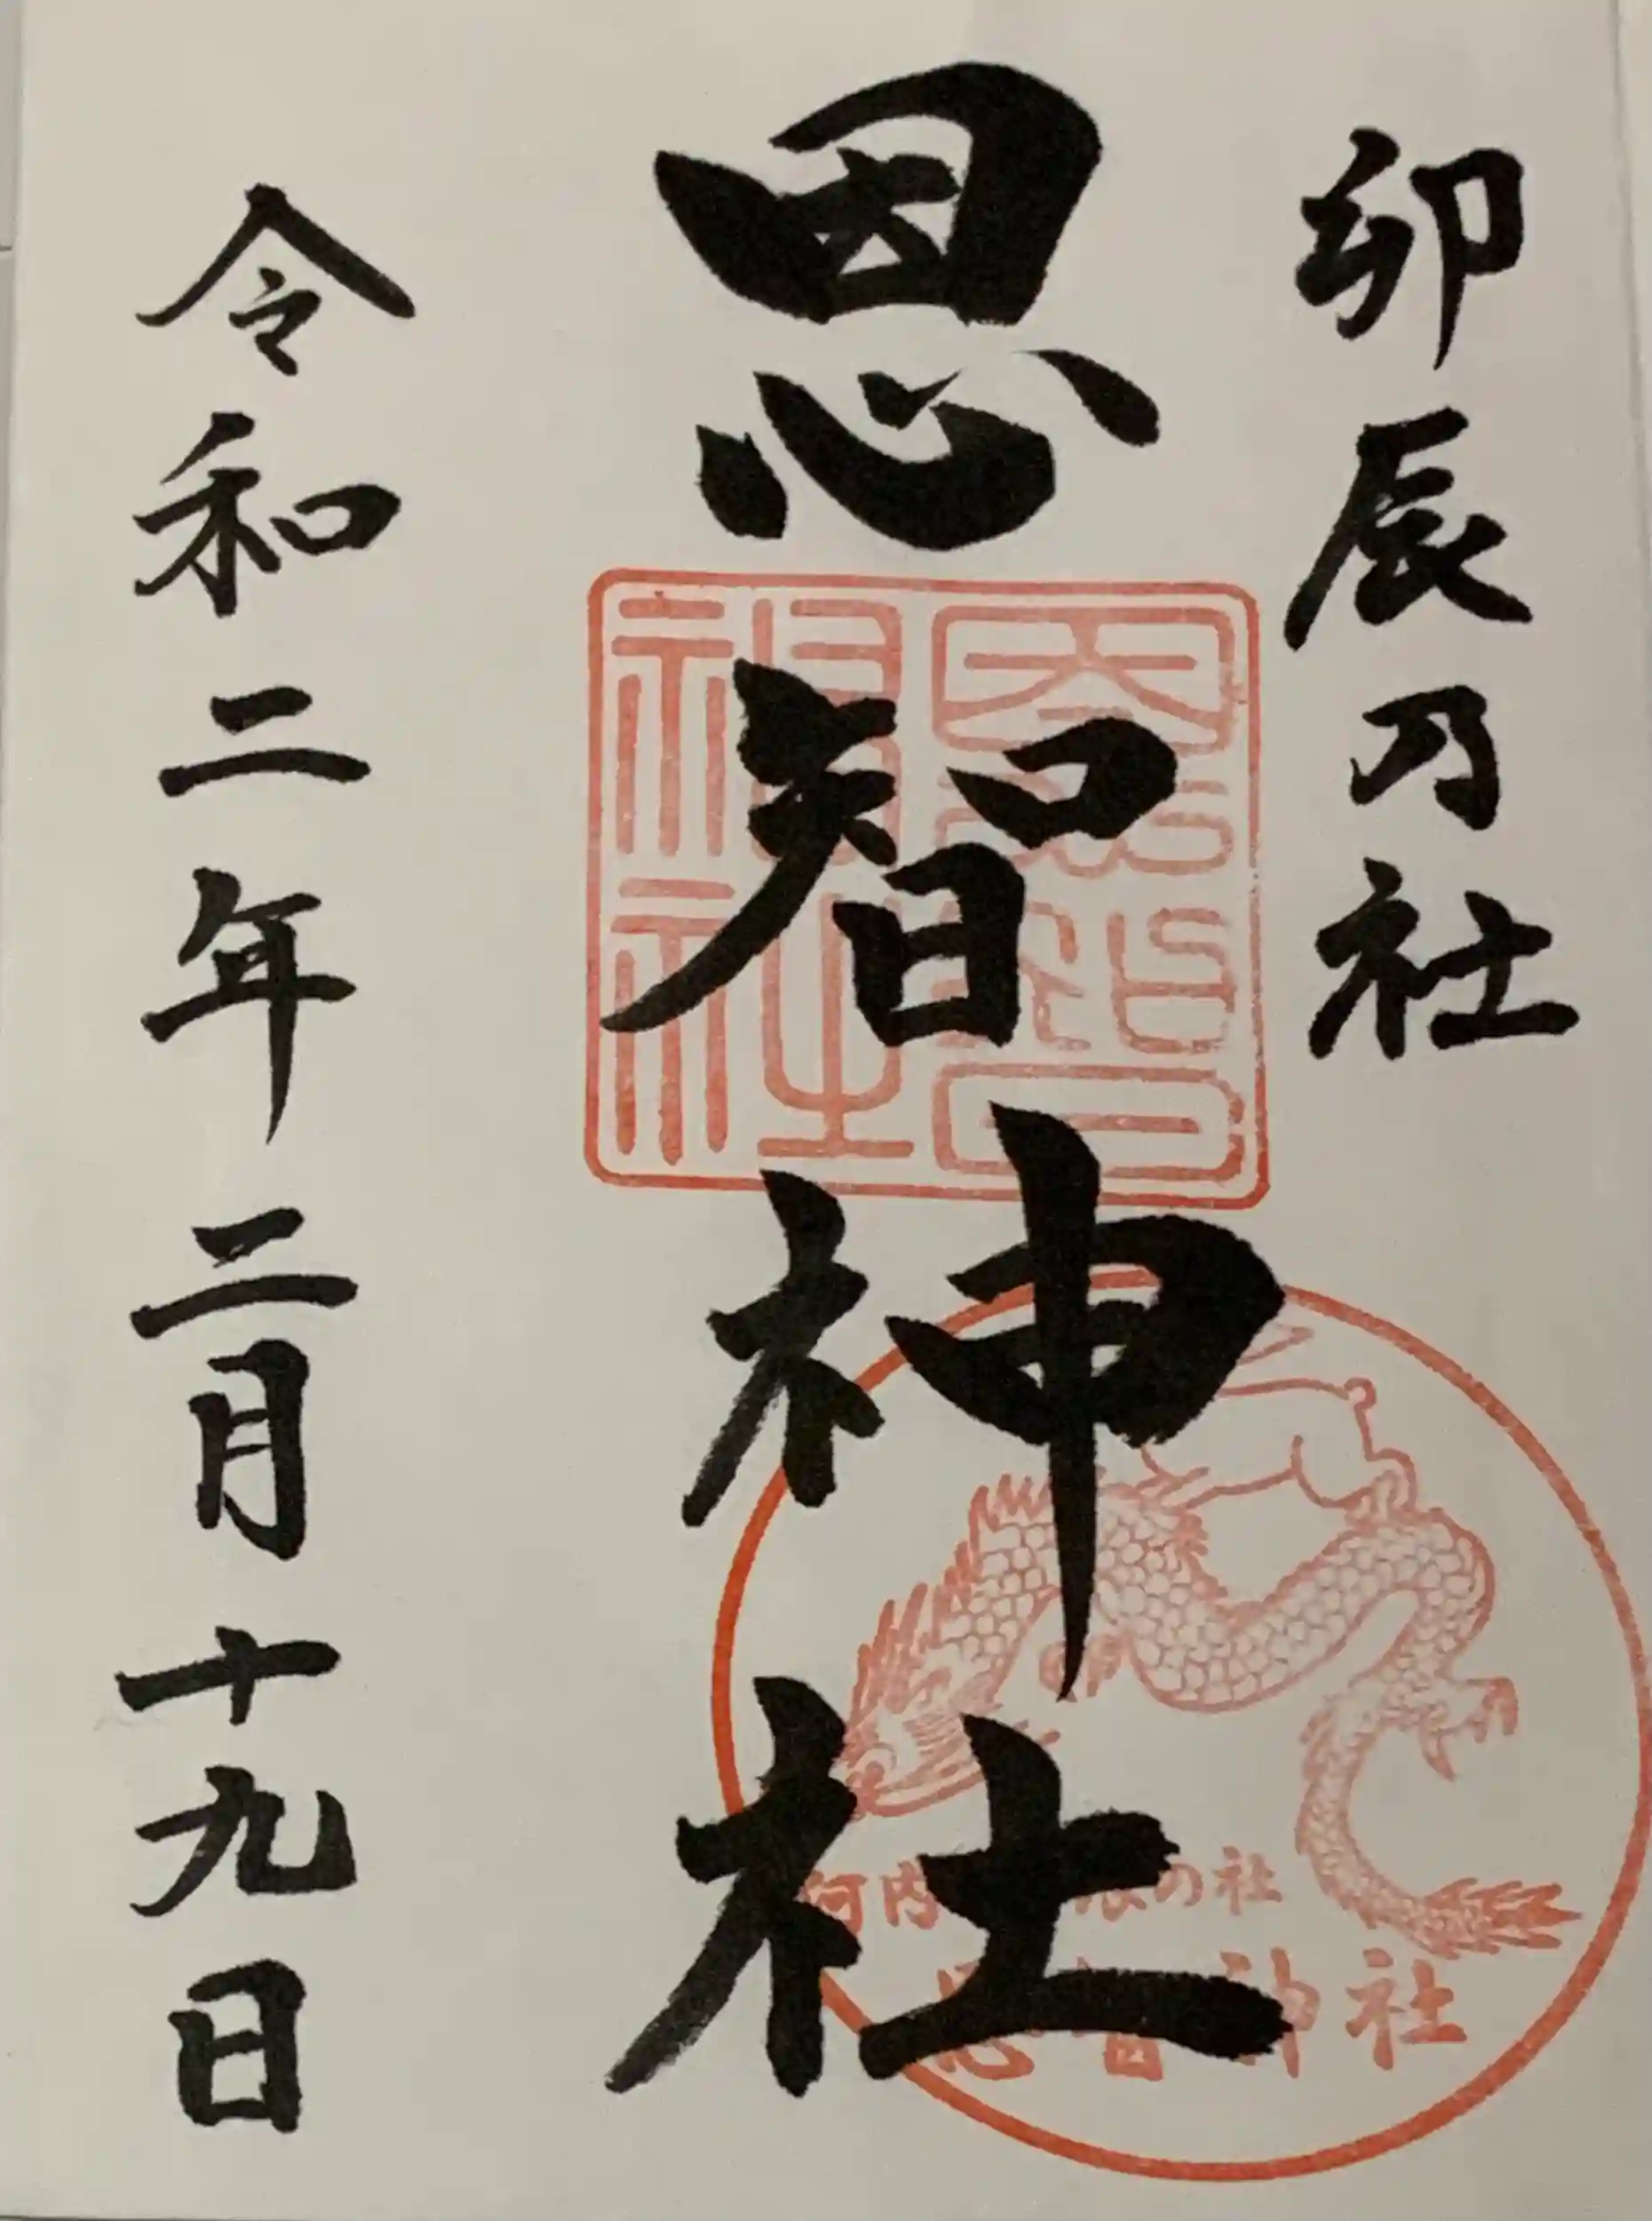 卯辰乃社
恩智神社
令和二年二月十九日
恩智神社
河内 辰の社
恩智神社